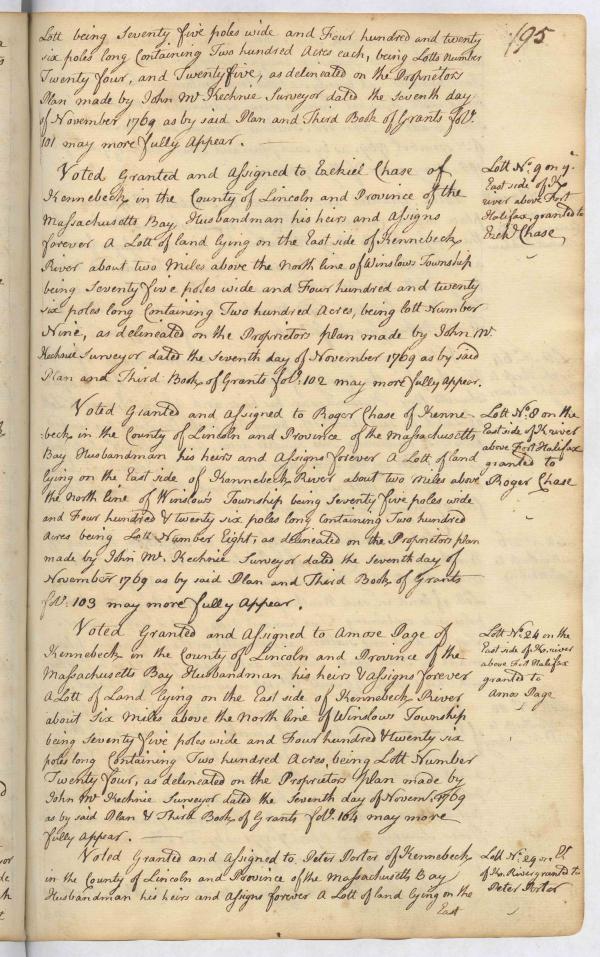 195
Lott being Seventy five poles wide and Four hundred and twenty
six poles long Containing Two hundred Acres each, being Lotts Number
Twenty four, and Twenty five, as delineated on the Proprietors
Plan made by John Mc. Kechnie Surveyor dated the Seventh day
of November 1769 as by said Plan and Third Book of Grants folo.
101 may more fully Appear.
Voted Granted and Assigned to Ezekiel Chase of
Kennebeck in the County of Lincoln and Province of the
Massachusetts Bay, Husbandman his heirs and Assigns
forever A Lott of land lying on the East side of Kennebeck
River about two Miles above the North line of Winslows Township
being Seventy five poles wide and Four hundred and twenty
six poles long Containing Two hundred Acres, being lott Number
Nine, as delineated on the Proprietors plan made by John Mc.
Kechnie Surveyor dated the Seventh day of November 1769 as by said
Plan and Third Book of Grants folo. 102 may more fully Appear.
Lott No. 9 on ye.
East side of K
river above Fort
Halifax, granted to
Ezekl. Chase
Voted Granted and Assigned to Roger Chase of Kenne-
:beck in the County of Lincoln and Province of the Massachusetts
Bay Husbandman his heirs and Assigns forever A Lott of land
lying on the East side of Kennebeck River about two Miles above
the North line of Winslows Township being Seventy five poles wide
and Four hundred & twenty six poles long Containing Two hundred
Acres being Lott Number Eight, as delineated on the Proprietors plan
made by John Mc. Kechnie Surveyor dated the Seventh day of
November 1769 as by said Plan and Third Book of Grants
folo. 103 may more fully Appear.
Lott No. 8 on the
East side of K. river
above Fort Halifax
granted to
Roger Chase
Voted Granted and Assigned to Amose Page of
Kennebeck in the County of Lincoln and Province of the
Massachusetts Bay Husbandman his heirs & Assigns forever
A Lott of Land lying on the East side of Kennebeck River
about Six Miles above the North line of Winslows Township
being Seventy five poles wide and Four hundred & twenty six
poles long Containing Two hundred Acres, being Lott Number
Twenty four, as delineated on the Proprietors plan made by
John Mc Kechnie Surveyor dated the Seventh day of Novemr. 1769
as by said Plan & Third Book of Grants folo. 164 may more
fully Appear.
Lott No. 24 on the
East side of Ke. river
above Fort Halifax
granted to
Amos Page
Voted Granted and Assigned to Peter Porter of Kennebeck
in the County of Lincoln and Province of the Massachusetts Bay
Husbandman his heirs and Assigns forever A Lott of land lying on the
East
Lott No. 29 on
of Ke. River granted to
Peter Porter